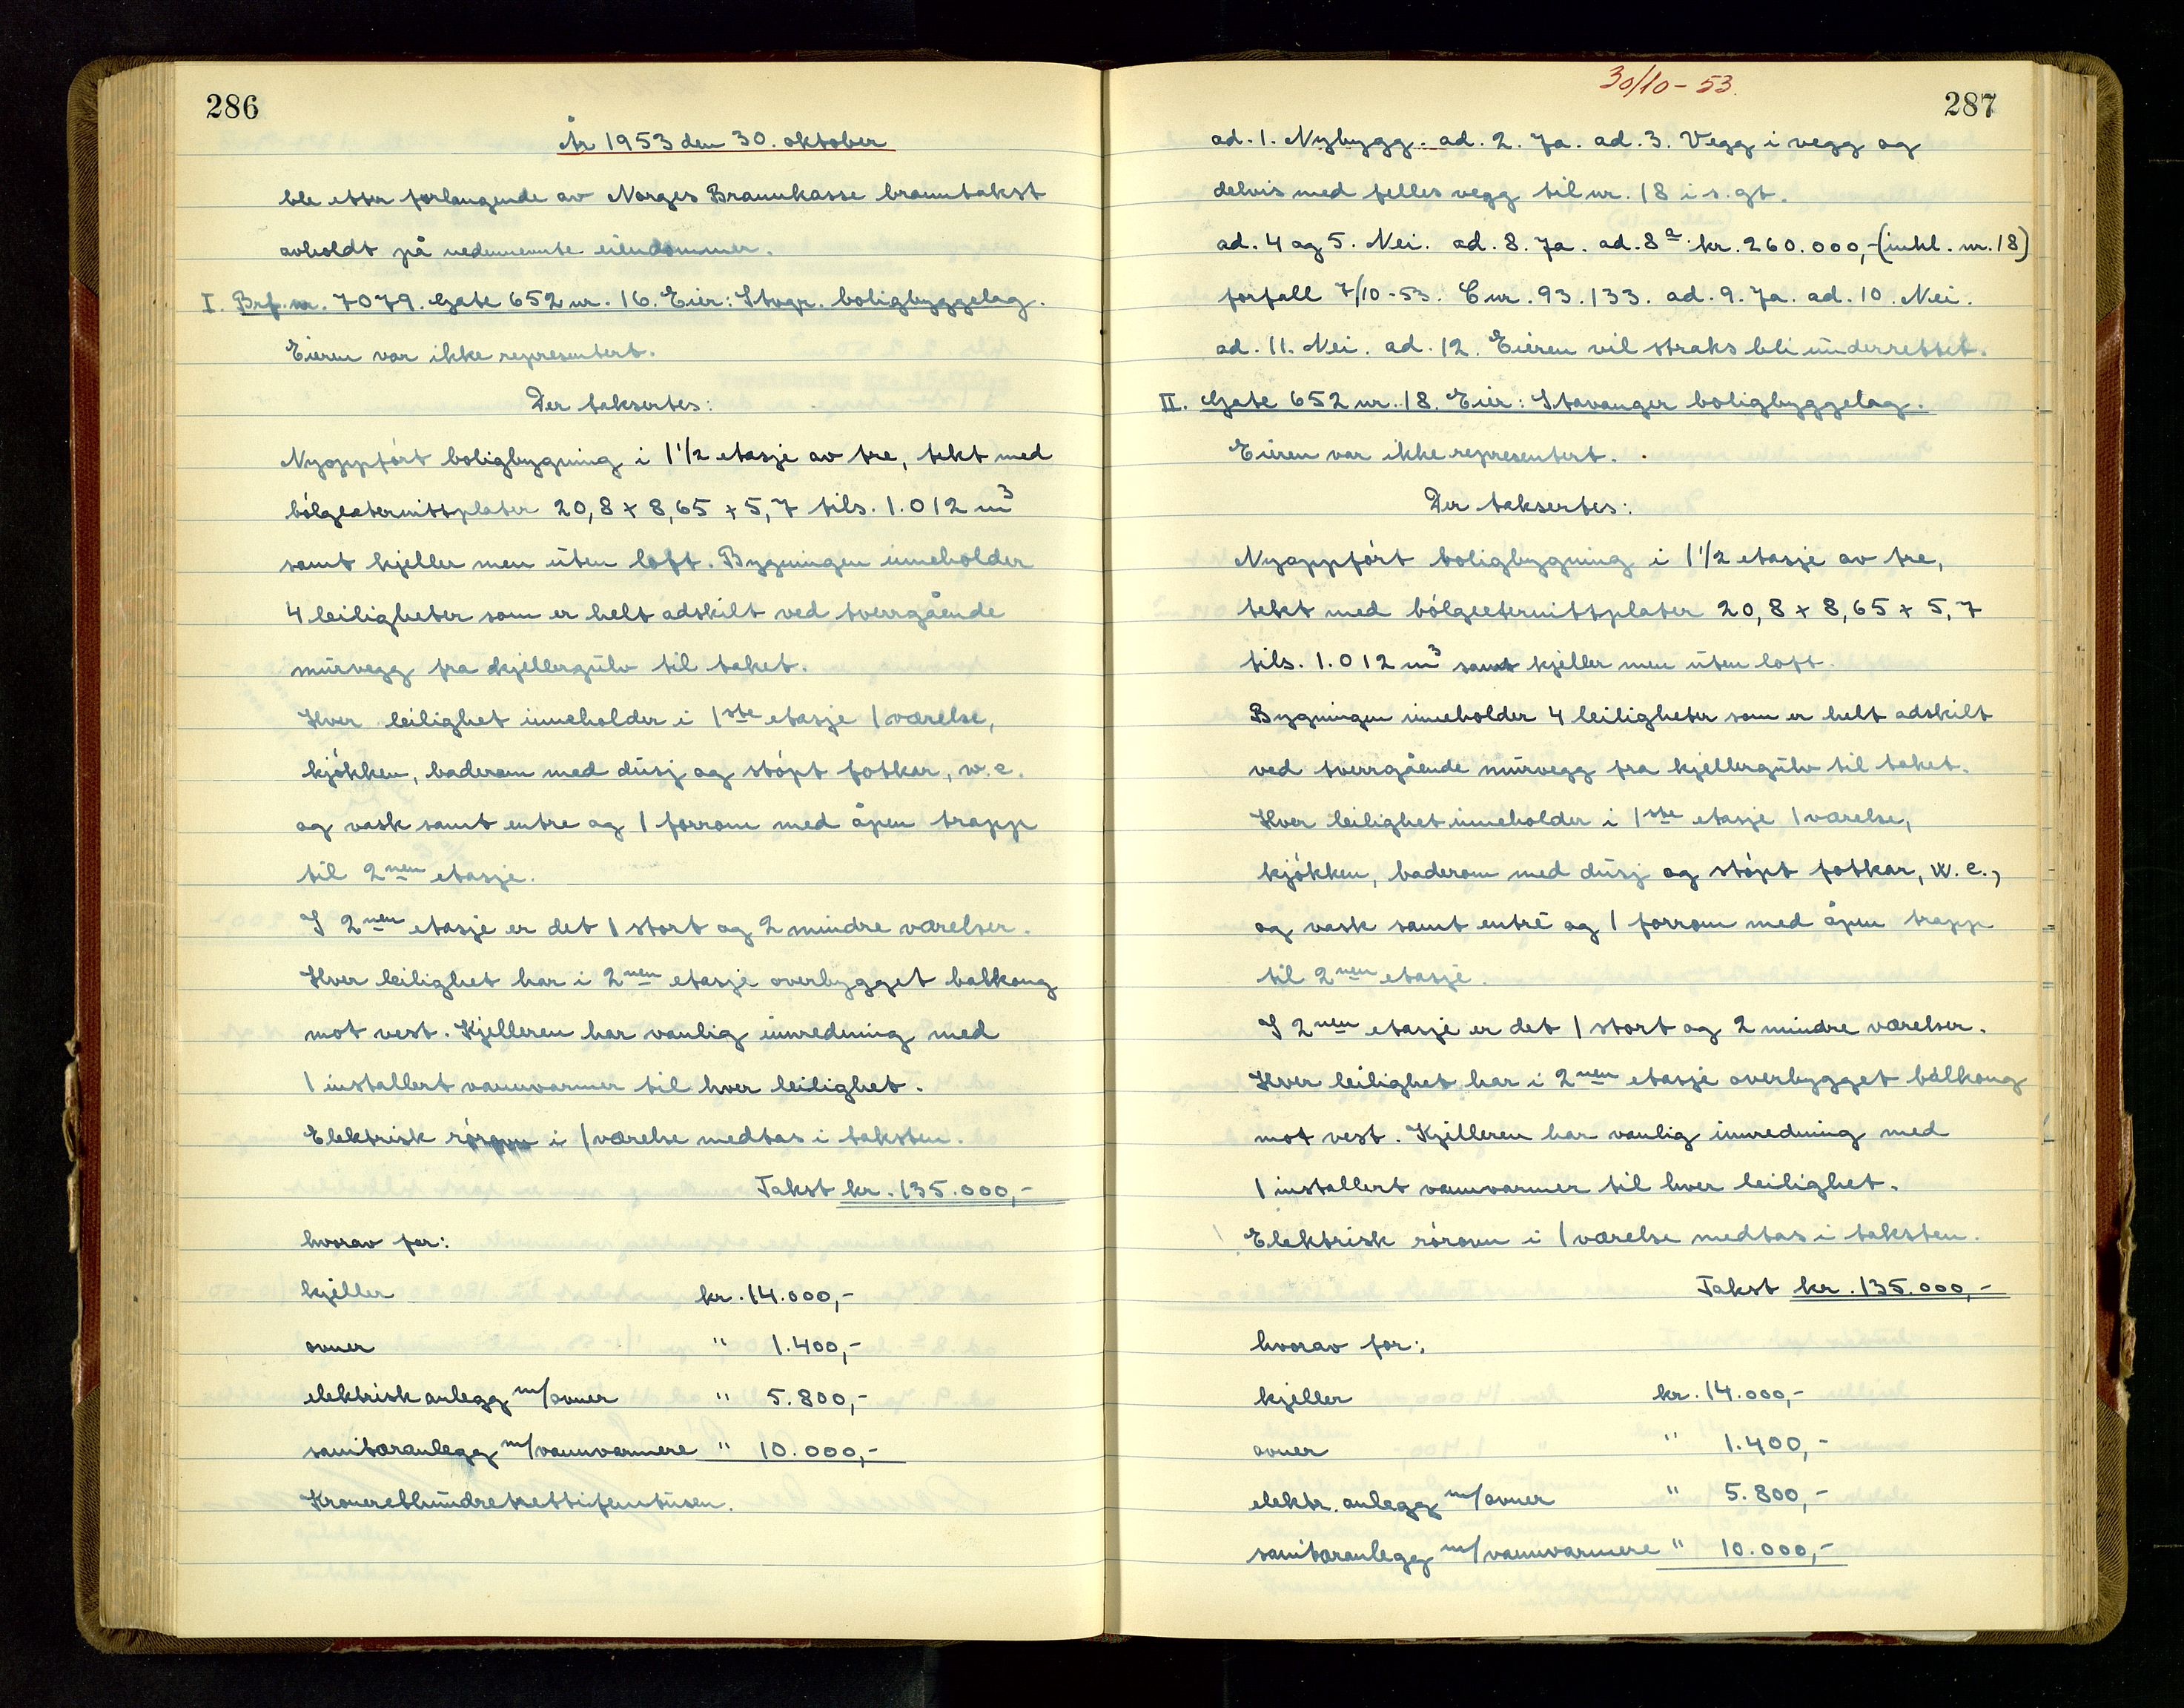 286
År 1953 den 30. oktober
ble etter forlangende av Norges Brannkasse branntakst
avholdt på nedennevnte eiendommer.
I. Brf. nr. 7079. Gate 652 nr. 16. Eier: Stvgr. boligbyggelag.
Eieren var ikke representert.
Der taksertes:
Nyoppført boligbygning i 1 1/2 etasje av tre, tekt med
bølgeeternittplater 20,8 x 8,65 x 5,7 tils. 1.012 m³
samt kjeller men uten loft. Bygningen inneholder
4 leiligheter som er helt adskilt ved tverrgående
murvegg fra kjellergulv til taket.
Hver leilighet inneholder i 1ste etasje 1 værelse,
kjøkken, baderom med dusj og støpt fotkar, w.c.
og vask samt entre og 1 forrom med åpen trapp
til 2nen etasje.
I 2nen etasje er det 1 stort og 2 mindre værelser.
Hver leilighet har i 2nen etasje overbygget balkong
mot vest. Kjelleren har vanlig innredning med
1 installert vannvarmer til hver leilighet.
Elektrisk rørovn i 1 værelse medtas i taksten.
Takst kr. 135.000,-
hvorav for:
kjeller kr. 14.000,-
ovner " 1.400,-
elektrisk anlegg m/ovner " 5.800,-
sanitæranlegg m/vannvarmere " 10.000,-
Kroneretthundretrettifemtusen.
30/10-53.
287
ad. 1. Nybygg. ad. 2. Ja. ad. 3. Vegg i vegg og
delvis med felles vegg til nr. 18 i s. gt.
ad. 4 og 5. Nei. ad. 8. Ja. ad. 8a. kr. 260.000,- (inkl. nr. 18)
forfall 7/10-53. C nr. 93.133. ad. 9. Ja. ad. 10. Nei.
ad. 11. Nei. ad. 12. Eieren vil straks bli underrettet.
II. Gate 652 nr. 18. Eier: Stavanger boligbyggelag.
Eieren var ikke representert.
Der taksertes:
Nyoppført boligbygning i 1 1/2 etasje av tre,
tekt med bølgeeternittplater 20,8 x 8,65 x 5,7
tils. 1.012 m³ samt kjeller men uten loft.
Bygningen inneholder 4 leiligheter som er helt adskilt
ved tverrgående murvegg fra kjellergulv til taket.
Hver leilighet inneholder i 1ste etasje 1 værelse,
kjøkken, baderom med dusj og støpt fotkar, w.c.,
og vask samt entré og 1 forrom med åpen trapp
til 2nen etasje.
I 2nen etasje er det 1 stort og 2 mindre værelser.
Hver leilighet har i 2nen etasje overbygget balkong
mot vest. Kjelleren har vanlig innredning med
1 installert vannvarmer til hver leilighet.
Elektrisk rørovn i 1 værelse medtas i taksten.
Takst kr. 135.000,-
hvorav for:
kjeller kr. 14.000,-
ovner " 1.400,-
elektr. anlegg m/ovner " 5.800,-
sanitæranlegg m/vannvarmere " 10.000,-